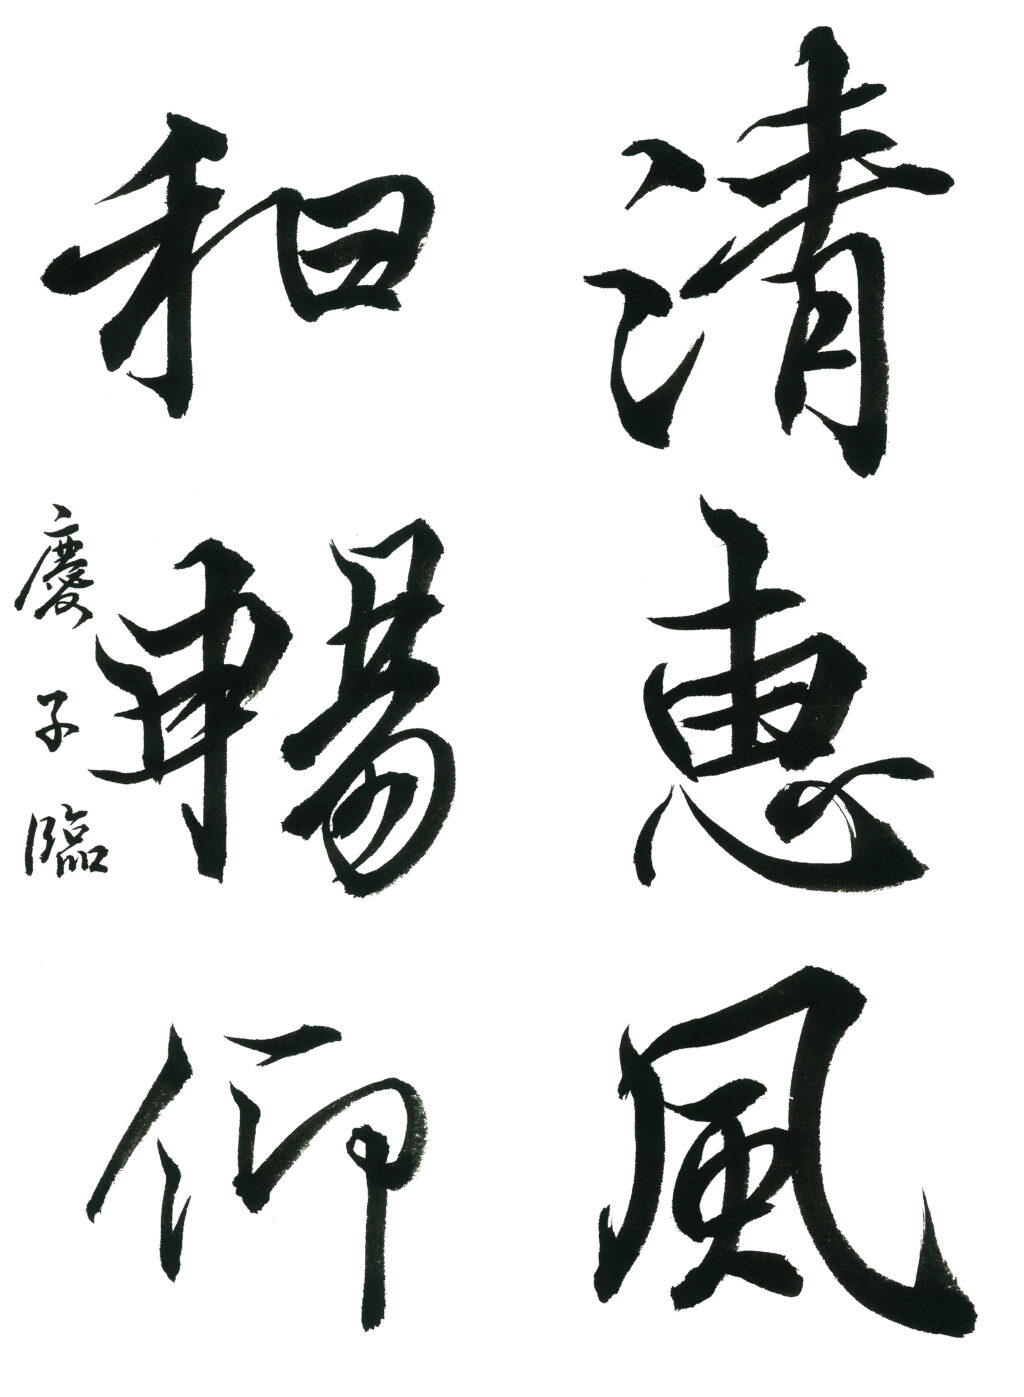 清惠風
和暢仰
慶子臨